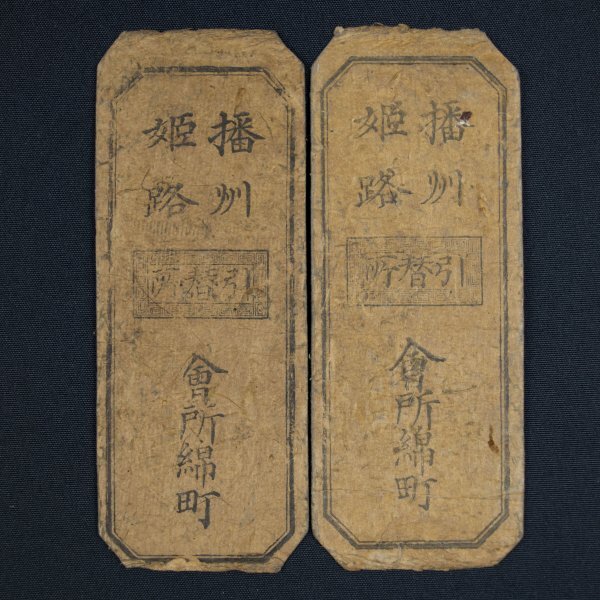 播州
姫路
引替所
會所綿町
播州
姫路
引替所
會所綿町